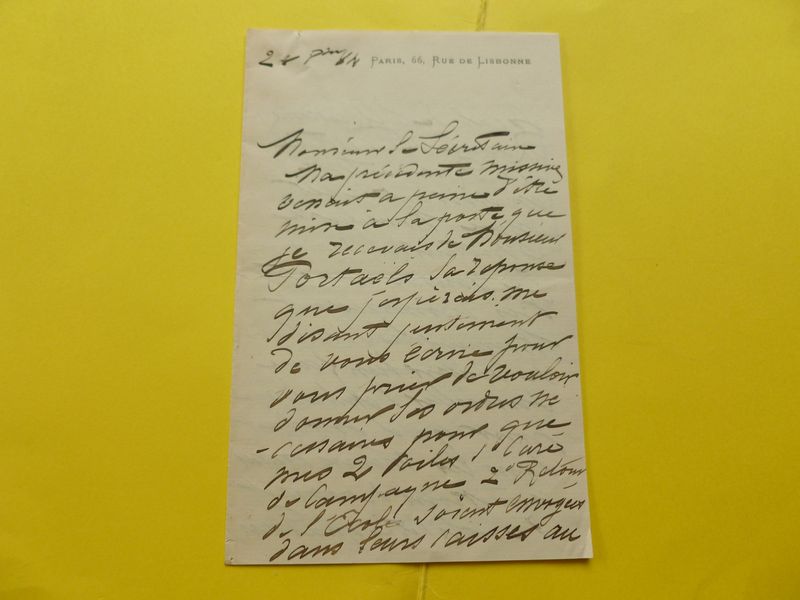 24 7bre 84 PARIS, 66, RUE DE LISBONNE
Monsieur le Secrétaire
Ma précédente missive
venait a peine d'être
mise à la poste que
je recevais de Monsieur
Portaëls la réponse
que j'espérais me
disant justement
de vous écrire pour
vous prier de vouloir
donner les ordres né
-cessaires pour que
mes 2 toiles 1° Curé
de Campagne 2° Retour
de l'École soient envoyées
dans leurs caisses au